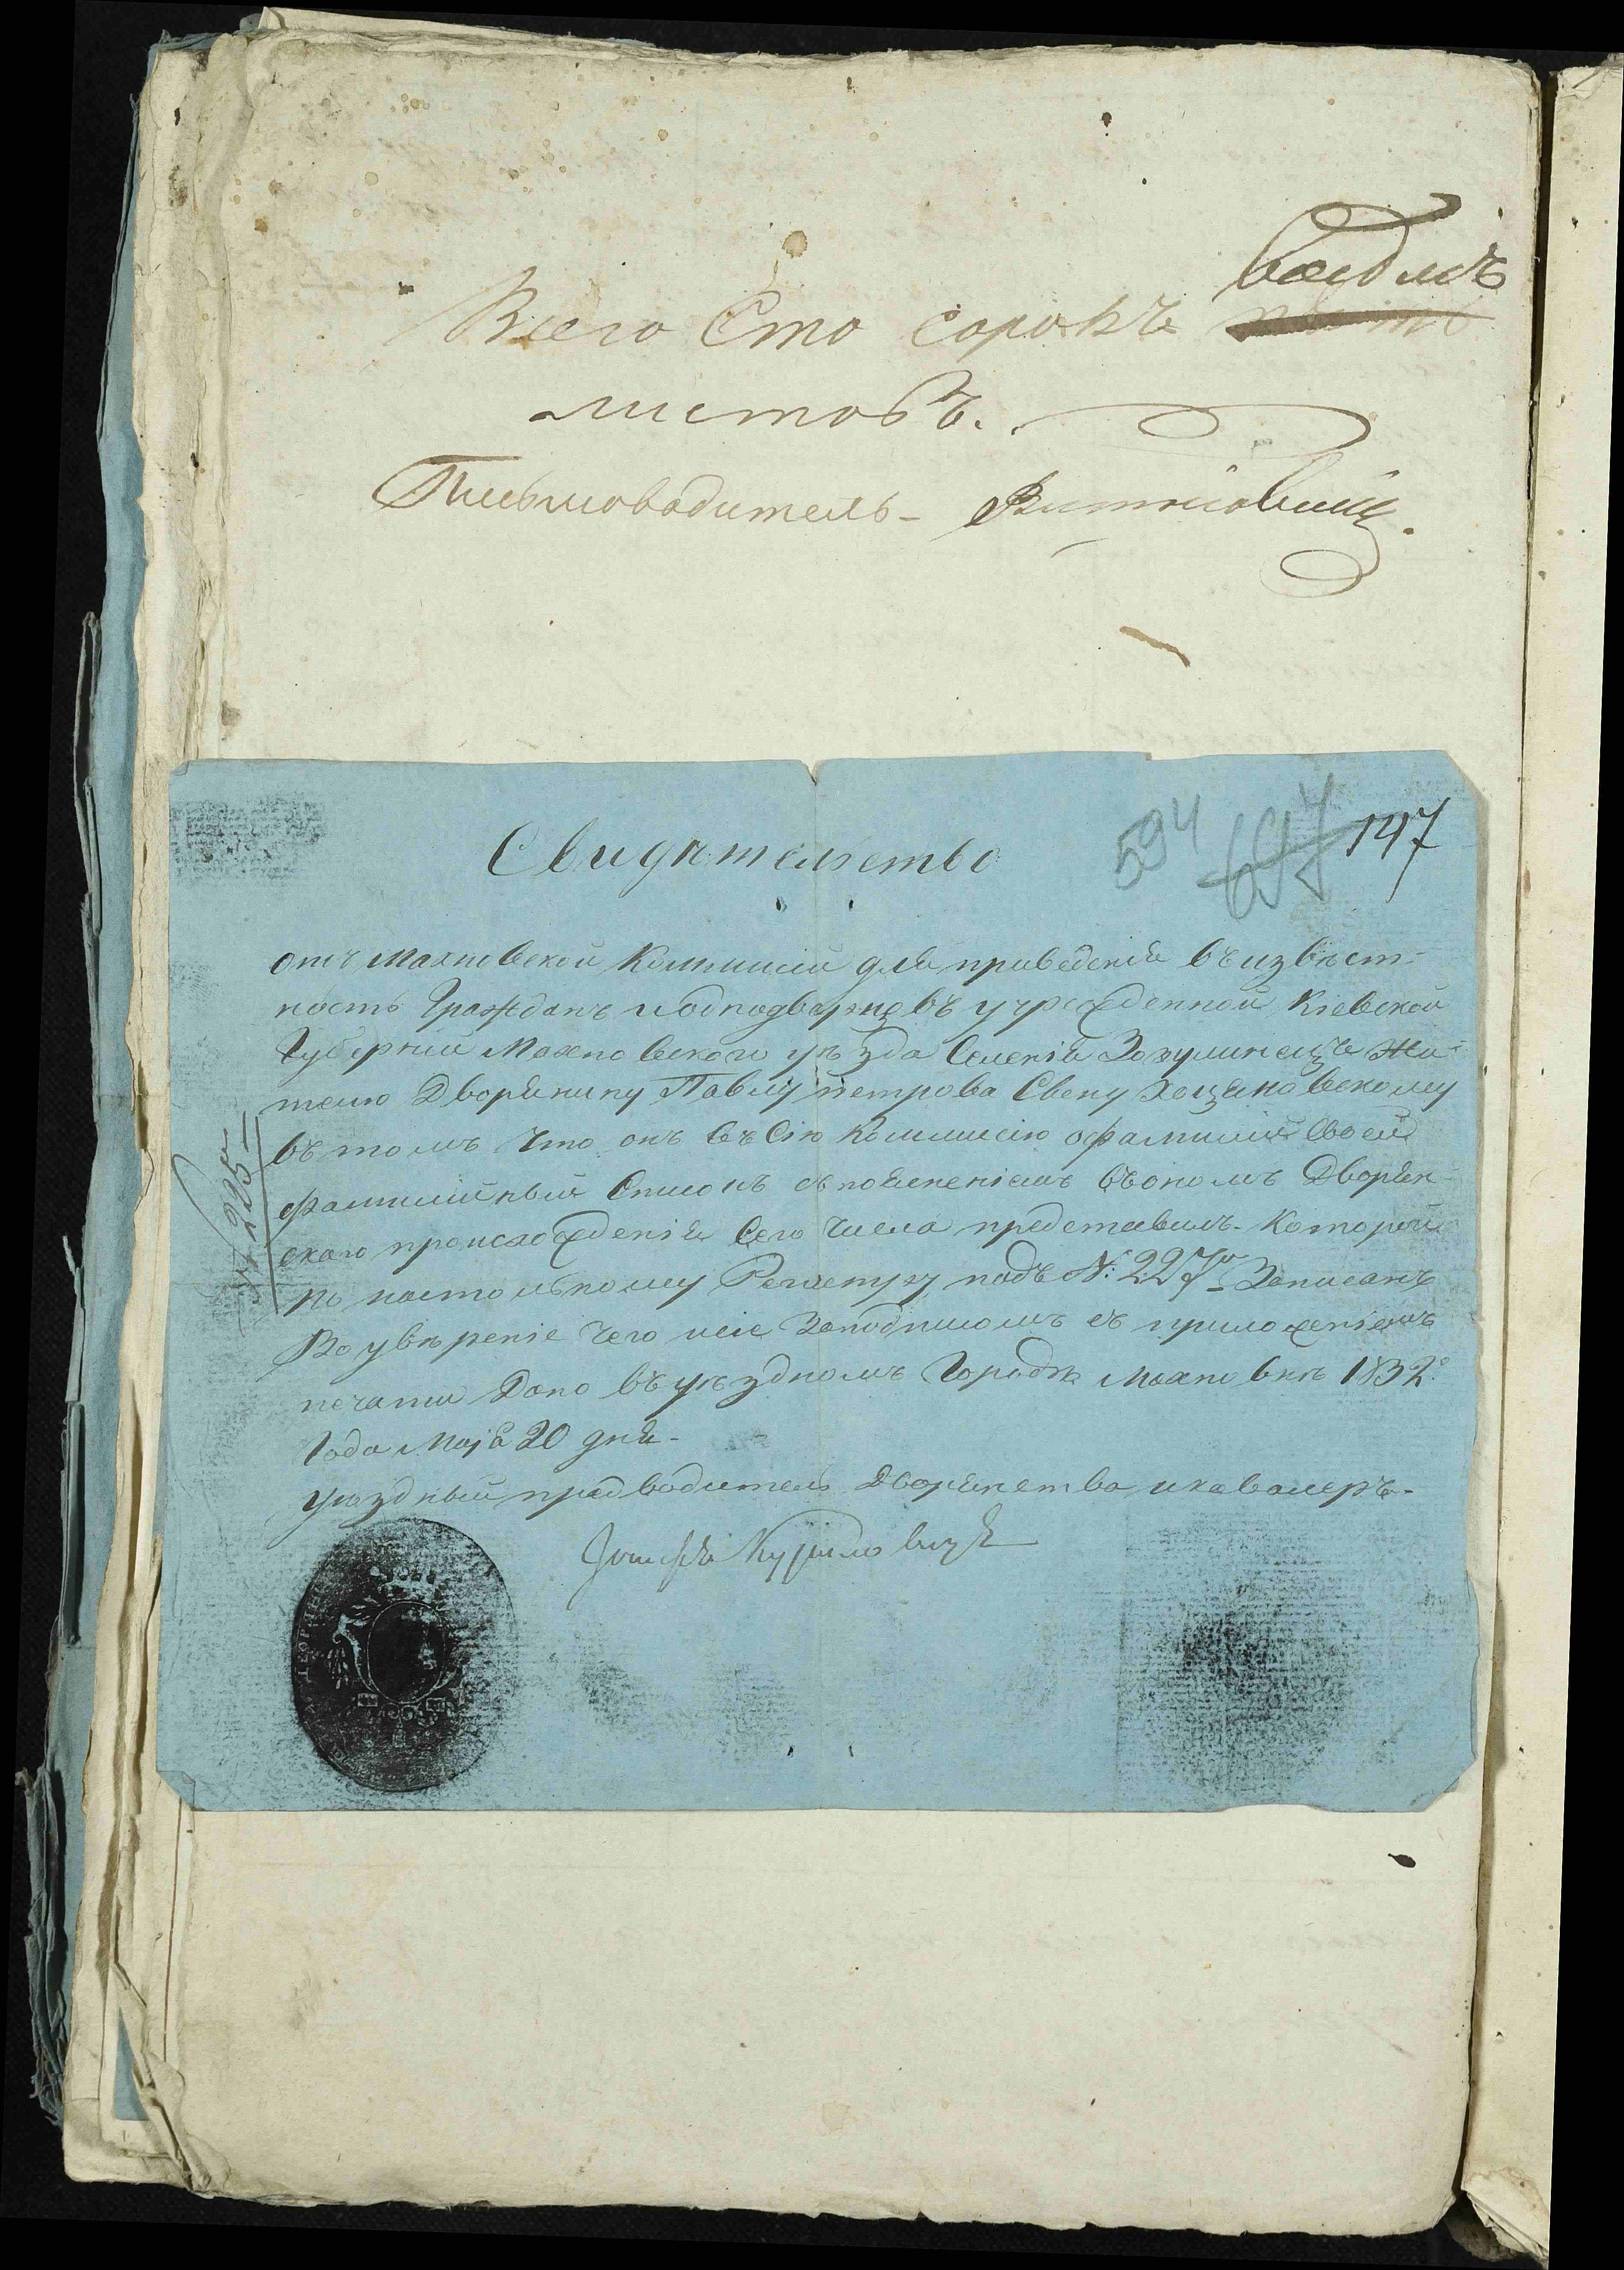 восемъ
Всего Сто сорокъ
листовъ.
Письмоводитель -
594 147
Свидѣтельство
отъ Махновской Коммисіи для приведенія въ извѣст-
ность Гражданъ и однодворцовъ учрежденной Кіевской
Губерніи Махновского уѣзда Селенія Зозулинецъ Жи-
телю Дворянину Павлу Петрова Сыну Хоцяновскому
въ томъ что онъ въ Сію Коммисію о фамиліи Своей
фамилійный Списокъ съ поясненіемъ въ ономъ Дворян-
скаго происхожденія Сего Числа представилъ. Которой
по настольному Регистру подъ N: 227 Записанъ
Во увѣреніе Чего сіе Заподписомъ съ приложеніемъ
печати Дано въ уѣздномъ Городѣ Махновкѣ 1832.
Года Маја 20 дня -
Уѣздный предводитель Дворянства и кавалеръ -
Іосифъ